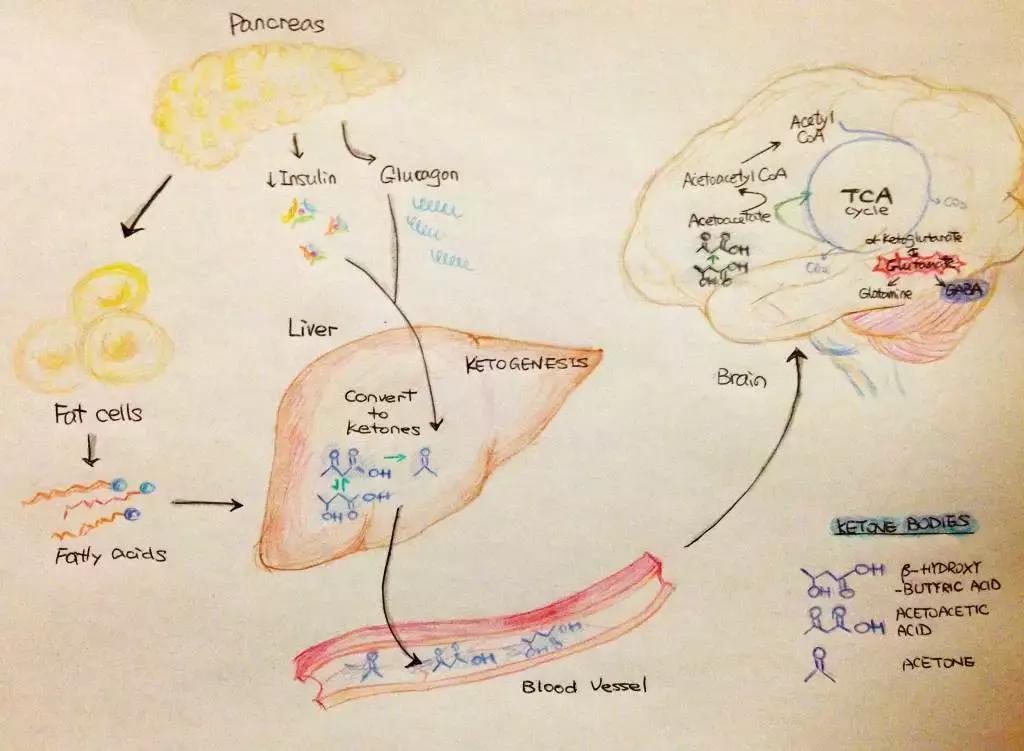 Pancreas
↓ Insulin
Glucagon
Fat cells
Fatty acids
Liver
KETOGENESIS
Convert
to
ketones
OH
OH
OH O
Acetyl
CoA
Acetoacetyl CoA
Acetoacetate
O O
OH
OH
OH O
TCA
cycle
CO₂
CO₂
α-Ketoglutarate
Glutamate
Glutamine
GABA
Brain
O
O O
OH
OH
OH O
Blood Vessel
KETONE BODIES
OH
OH O
β-HYDROXY
-BUTYRIC ACID
O O
OH
ACETOACETIC
ACID
O
ACETONE